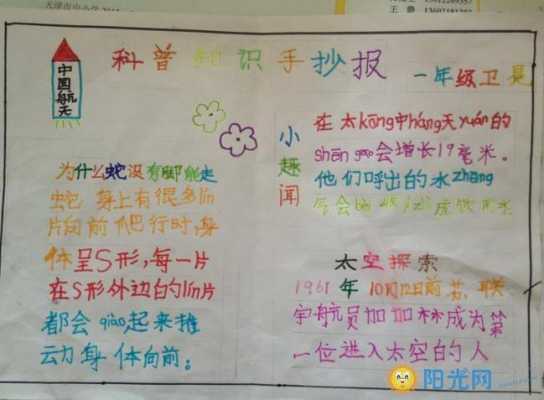 科普知识手抄报
一年级卫
中国航天
小趣闻
在太kōng中háng天yuán的
shēn gāo会增长19毫米。
他们呼出的水zhāng
为什么蛇没有脚能走
蛇身上有很多lín
片向前爬行时,身
体呈S形,每一片
在S形外边的lín片
都会qiào起来推
动身体向前。
太空探索
1961年10月12日前苏联
宇航员加加林成为第
一位进入太空的人
阳光网